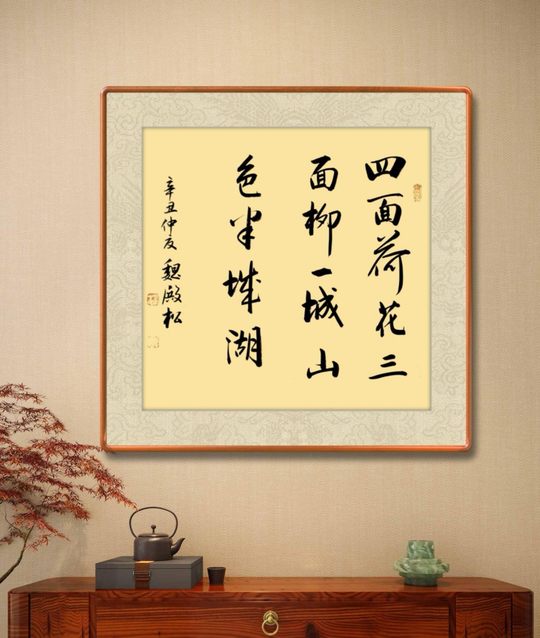 四面荷花三
面柳一城山
色半城湖
辛丑仲夏 魏殿松